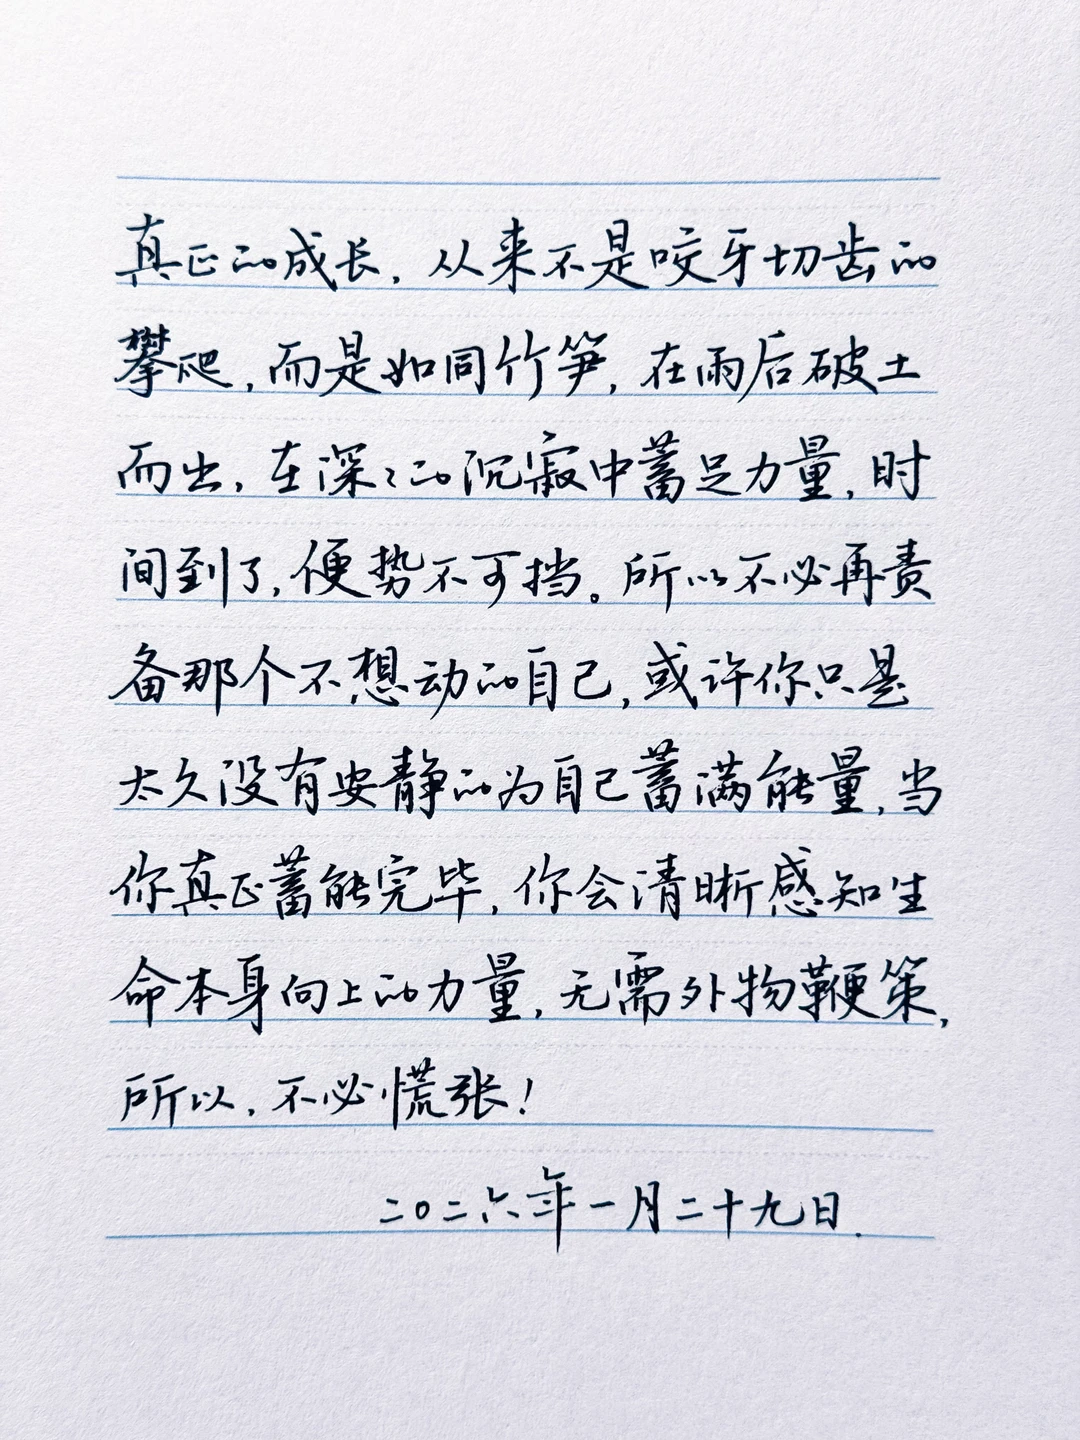 真正的成长，从来不是咬牙切齿的
攀爬，而是如同竹笋，在雨后破土
而出，在深深的沉寂中蓄足力量，时
间到了，便势不可挡。所以不必再责
备那个不想动的自己，或许你只是
太久没有安静的为自己蓄满能量，当
你真正蓄能完毕，你会清晰感知生
命本身向上的力量，无需外物鞭策，
所以，不必慌张！
二〇二六年一月二十九日.